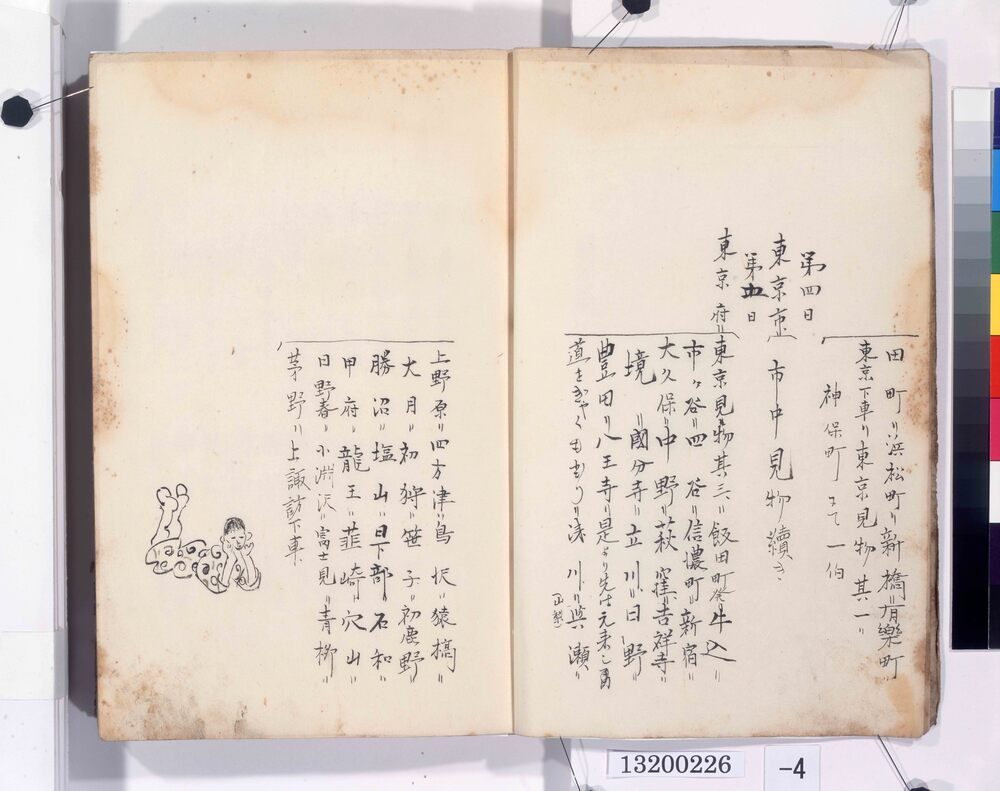 田町〃浜松町〃新橋〃有樂町〃
東京下車〃東京見物其一〃
神保町にて一伯
第四日
東京市 市中見物續き
第五日
東京府〃東京見物其三〃飯田町発〃牛込〃
市ヶ谷〃四谷〃信濃町〃新宿〃
大久保〃中野〃萩窪〃吉祥寺〃
境〃國分寺〃立川〃日野〃
豊田〃八王寺〃是より先は元来し
道を〃浅川〃與瀬〃
上野原〃四方津〃鳥沢〃猿橋〃
大月〃初狩〃笹子〃初鹿野〃
勝沼〃塩山〃日下部〃石和〃
甲府〃龍王〃韮崎〃穴山〃
日野春〃小淵沢〃富士見〃青柳〃
茅野〃上諏訪下車
13200226
-4